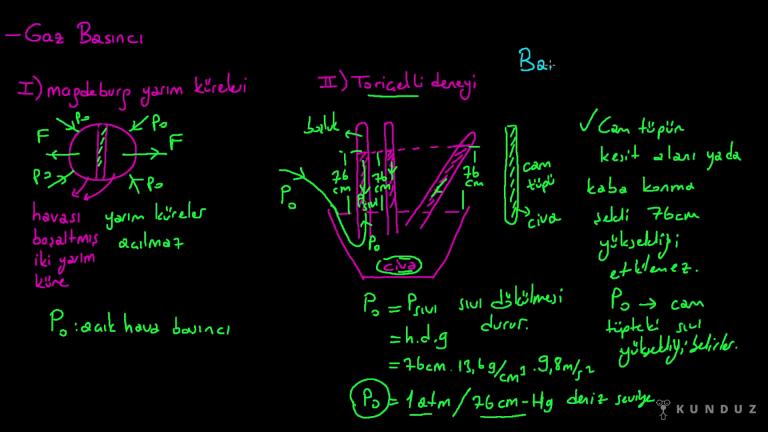 - Gaz Basıncı
I) magdeburg yarım küreleri
F
P₀
P₀
F
P₀
P₀
havası
boşaltmış
iki yarım
küre
yarım küreler
açılmaz
P₀ : açık hava basıncı
II) Toricelli deneyi
boşluk
P₀
76
cm
76
cm
Psıvı
P₀
76
cm
civa
cam
tüpü
civa
P₀ = Psıvı sıvı dökülmesi
durur.
= h.d.g
= 76cm . 13,6g/cm³ . 9,8m/s²
P₀ = 1 atm / 76 cm-Hg deniz seviye
Bai
✓ Cam tüpün
kesit alanı yada
kaba konma
şekli 76cm
yüksekliği
etkilemez.
P₀ → cam
tüpteki sıvı
yüksekliği belirler.
KUNDUZ